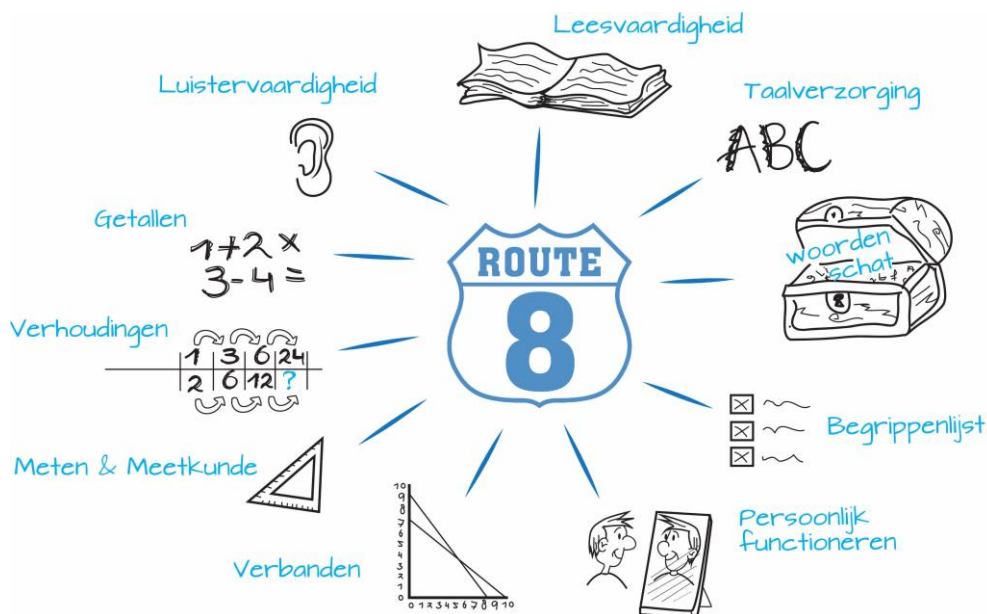 Leesvaardigheid
Luistervaardigheid
Taalverzorging
ABC
Getallen
1+2 x
3-4 =
woorden
schat
ROUTE
8
Verhoudingen
1 3 6 24
2 6 12 ?
Begrippenlijst
Meten & Meetkunde
Persoonlijk
functioneren
Verbanden
10
9
8
7
6
5
4
3
2
1
0
0 1 2 3 4 5 6 7 8 9 10